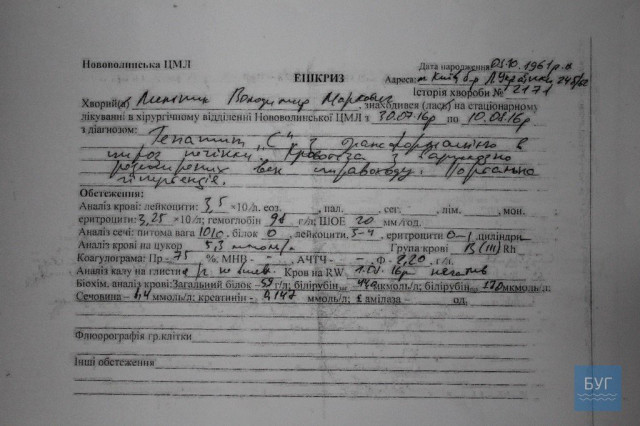 Нововолинська ЦМЛ
Дата народження 03.10.1961р.
ЕШКРИЗ
Адреса: м Київ б-р Л.Українки
Історія хвороби № 2171
Хворий(а) Володимир Маркович знаходився (лась) на стаціонарному
лікуванні в хірургічному відділенні Нововолинської ЦМЛ з 30.07.16р по 10.08.16р
з діагнозом: Гепатит "С" з трансформацією в
цироз печінки. Кровотеча з варикозно
розширених вен стравоходу. Портальна
гіпертензія.
Обстеження:
Аналіз крові: лейкоцити 3,5 ×10/л. еоз. пал. сег. лім. мон.
еритроцити: 3,25 ×10/л; гемоглобін 98 г/л; ШОЕ 20 мм/год.
Аналіз сечі: питома вага 1010 білок 0, лейкоцити 3-4 еритроцити 0-1 циліндри
Аналіз крові на цукор 5,3 ммоль/л Група крові В(III) Rh
Коагулограма: Пр- 75 %; МНВ - АЧТЧ - Ф - 2,20 г/л.
Аналіз калу на глисти Кров на RW 1.08.16р негатив
Біохім. аналіз крові: Загальний білок – 59 г/л; білірубін мкмоль/л; білірубін мкмоль/л;
Сечовина – 4,4 ммоль/л; креатинін - 0,147 ммоль/л; амілаза – од.
Флюорографія гр.клітки
Інші обстеження
БУГ